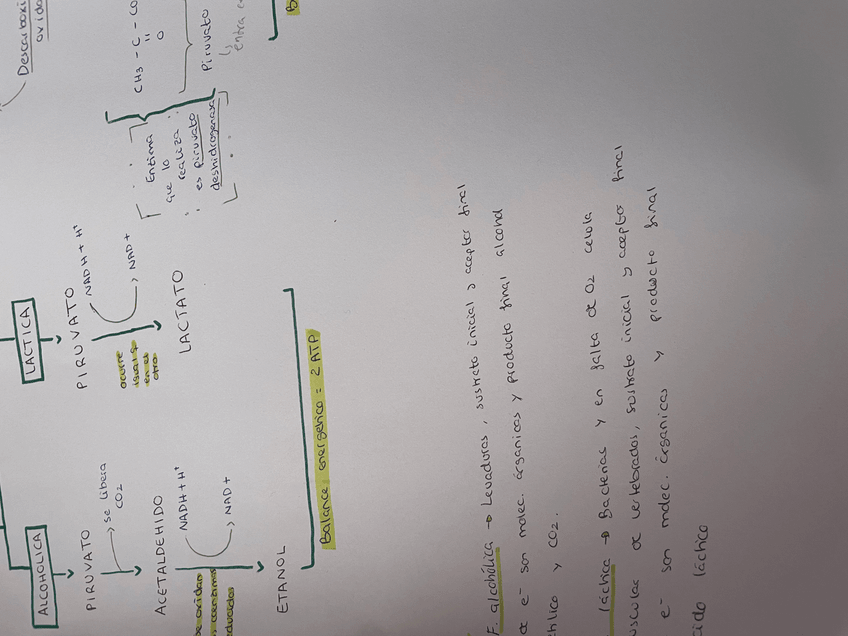 ALCOHOLICA
PIRUVATO
se libera
CO2
ACETALDEHIDO
NADH+H+
NAD+
ETANOL
LACTICA
PIRUVATO
NADH+H+
NAD+
ocurre
igual q
en el
otro
LACTATO
Balance energético = 2 ATP
Enzima
que lo
realiza
es piruvato
deshidrogenasa
CH3 - C - CO
O
Piruvato
entra
F. alcohólica → Levaduras, sustrato inicial y aceptor final
e- son molec. órganicas y producto final alcohol
y CO2.
láctica → Bacterias y en falta O2 celula
vertebrados, sustrato inicial y aceptor final
e- son molec. órganicas y producto final
láctico